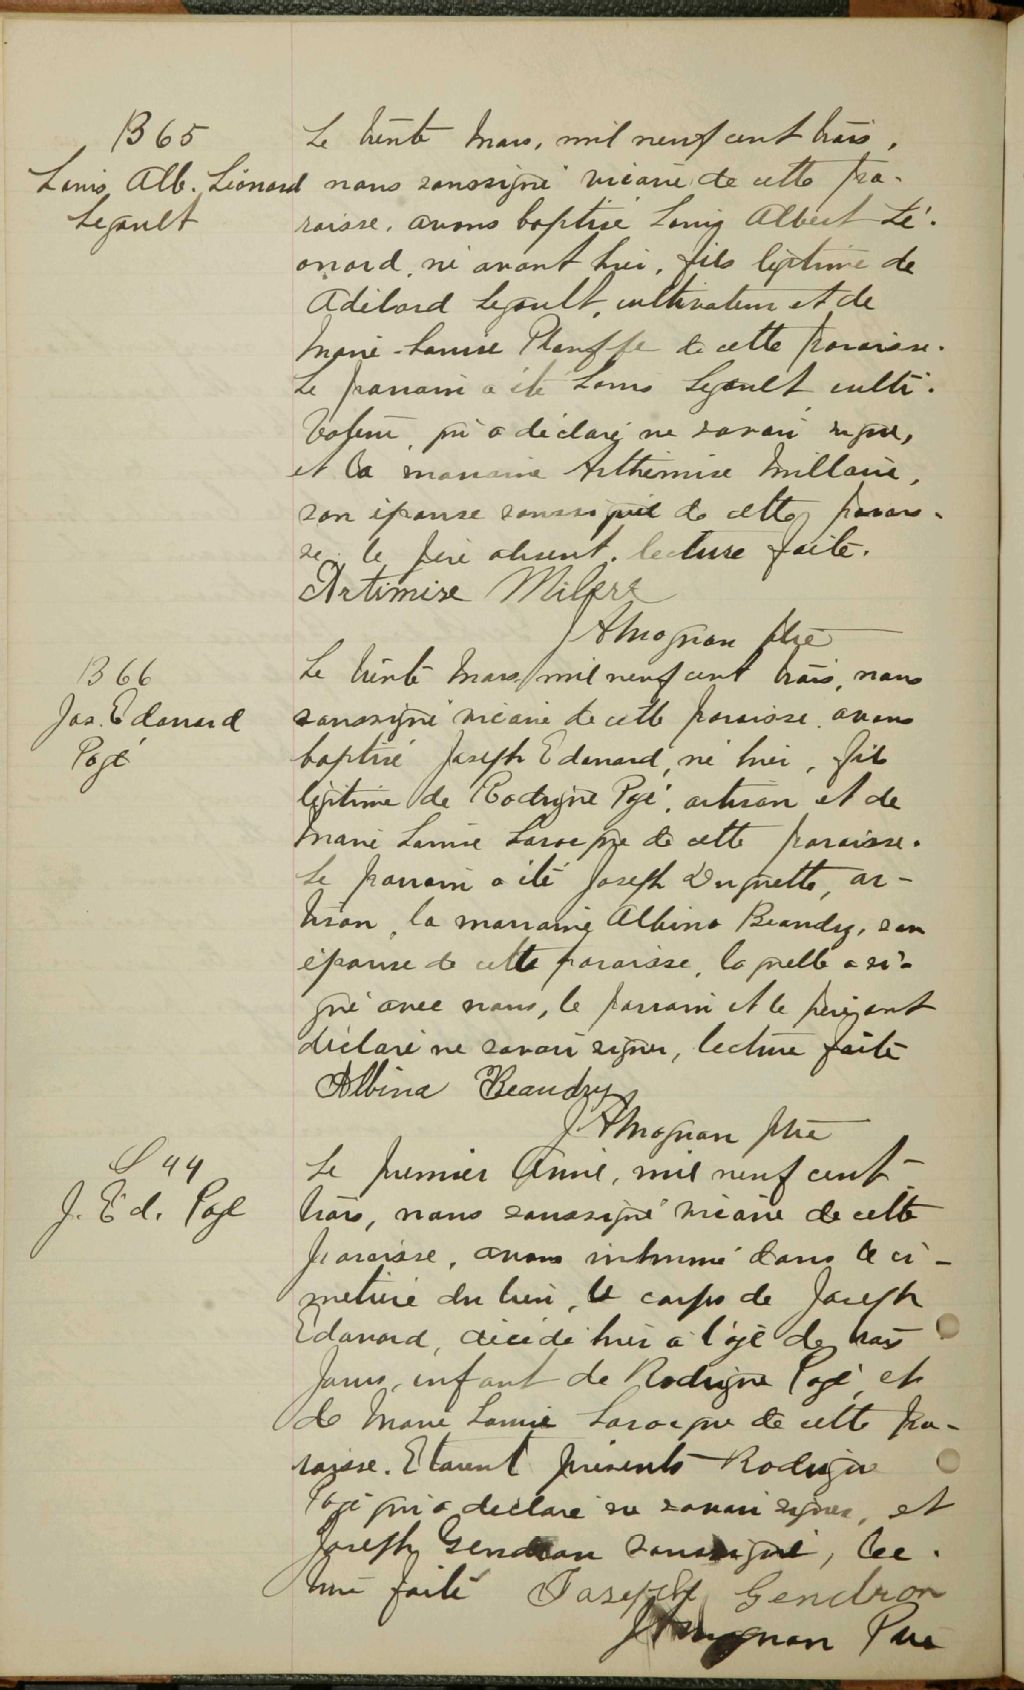 B 65
Louis Alb. Léonard
Legault
Le trente Mars, mil neuf cent trois,
nous soussigné vicaire de cette pa-
roisse, avons baptisé Louis Albert Lé-
onard, né avant hier, fils légitime de
Adélard Legault, cultivateur et de
Marie-Louise Plouffe de cette paroisse.
Le parrain a été Louis Legault culti-
vateur, qui a déclaré ne savoir signer,
et la marraine Arthémise Millaire,
son épouse soussignée de cette parois-
se. le père absent. lecture faite.
Artimise Milere
J A ptre
B 66
Jos. Edouard
Pagé
Le trente Mars mil neuf cent trois, nous
soussigné vicaire de cette paroisse avons
baptisé Joseph Edouard, né hier, fils
légitime de Rodrigue Pagé, artisan et de
Marie Louise Larocque de cette paroisse.
Le parrain a été Joseph Duquette, ar-
tisan, la marraine Albina Beaudry, son
épouse de cette paroisse, laquelle a si-
gné avec nous, le parrain et le père ont
déclaré ne savoir signer, lecture faite
Albina Beaudry
J A ptre
S 44
J. Ed. Pagé
Le premier Avril, mil neuf cent
trois, nous soussigné vicaire de cette
paroisse, avons inhumé dans le ci-
metière du lieu, le corps de Joseph
Edouard, décédé hier à l'âge de trois
jours, enfant de Rodrigue Pagé, et
de Marie Louise Larocque de cette pa-
roisse. Etaient présents Rodrigue
Pagé qui a déclaré ne savoir signer, et
Joseph Gendron soussigné, lec-
ture faite Joseph Gendron
J A Ptre